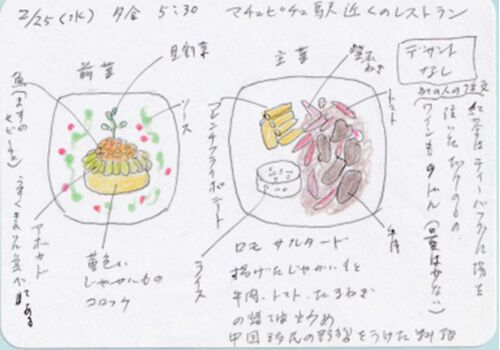 2/25(水) 夕食 5:30 マチュピチュ駅近くのレストラン
前菜
豆新菜
魚(ますの
セビーチェ)
ソース
アボカド
黄色い
じゃがいもの
コロッケ
主菜
フレンチフライポテト
トマト
牛肉
ライス
デザート
なし
ロモ サルタード
揚げたじゃがいもと
牛肉、トマト、たまねぎ
の醤油炒め
中国移民の影響をうけた料理
別の人の注文
紅茶はティーバッグに湯を
注いだだけのもの
(量は少ない)